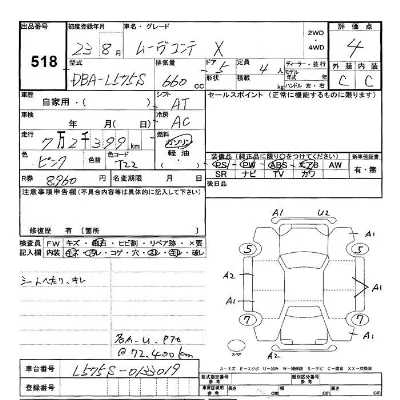 出品番号 初度登録年月 車名・グレード 2WD 4WD 評価点
518 23年8月 ムーヴコンテ X 4
型式 排気量 ドア 形状 定員 積載 ディーラー・並行 モデル年式 ハンドル 左・右 外装 内装
DBA-L575S 660 CC 5 4人 kg C C
車歴 自家用・( ) シフト AT セールスポイント(正常に機能するものに限る)
車検 年 月(日) 冷房 AC
走行 7万2千399km 燃料 ガソリン 軽油
色 ピンク 色替 色コード T22
装備品(純正品に限り○をつけてください) 新車保証書
PS PW ABS エアB AW 有・無
SR ナビ TV カワ
R券 8960 名変期限 月 日 後日品
注意事項申告欄(不具合内容等は具体的に記入して下さい)
修復歴 有(箇所 )
検査員記入欄 FW キズ・飛石・ヒビ割・リペア跡・×要
内装 キズ・コゲ・穴・キレ・破レ
シートヘタリ、キレ
@72,400km
車台番号 L575S-0133019
登録番号
A1 U2
5 5 A1
A2 A1
A2
7 7 A1
A1 A2
スペア